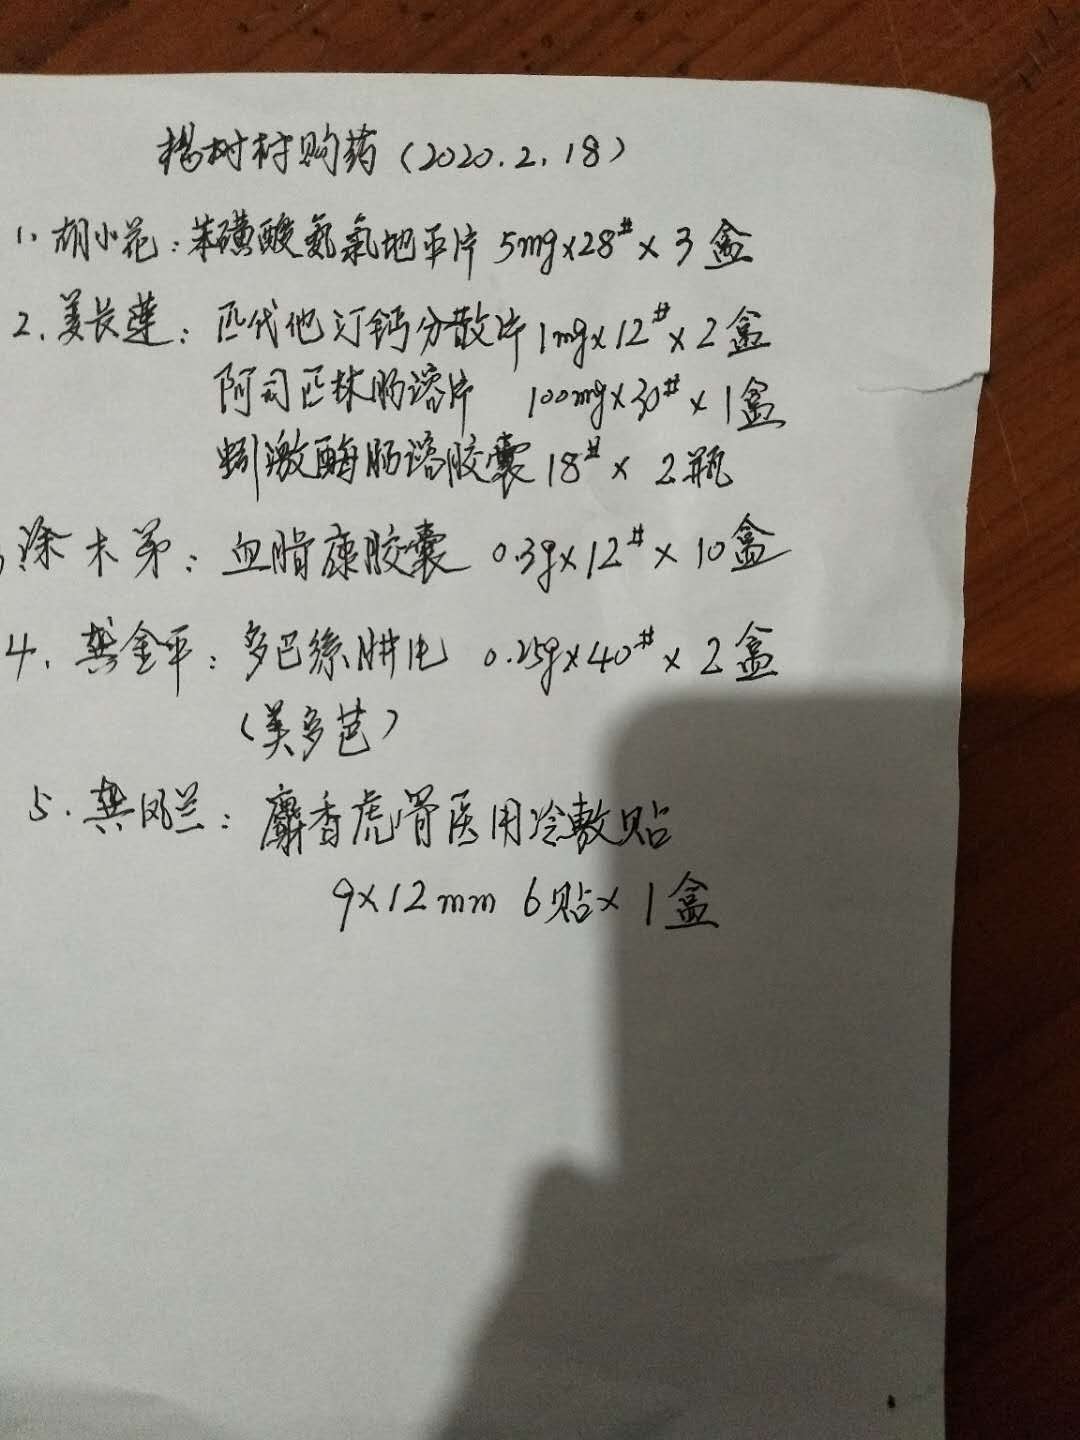 杨树村购药（2020.2.18）
1、胡小花：苯磺酸氨氯地平片 5mg×28#×3盒
2.姜长莲：匹代他汀钙分散片 1mg×12#×2盒
阿司匹林肠溶片 100mg×30#×1盒
蚓激酶肠溶胶囊 18#×2瓶
涂木弟：血脂康胶囊 0.3g×12#×10盒
4.龚金平：多巴丝肼片 0.25g×40#×2盒
（美多芭）
5.龚凤兰：麝香虎骨医用冷敷贴
9×12mm 6贴×1盒